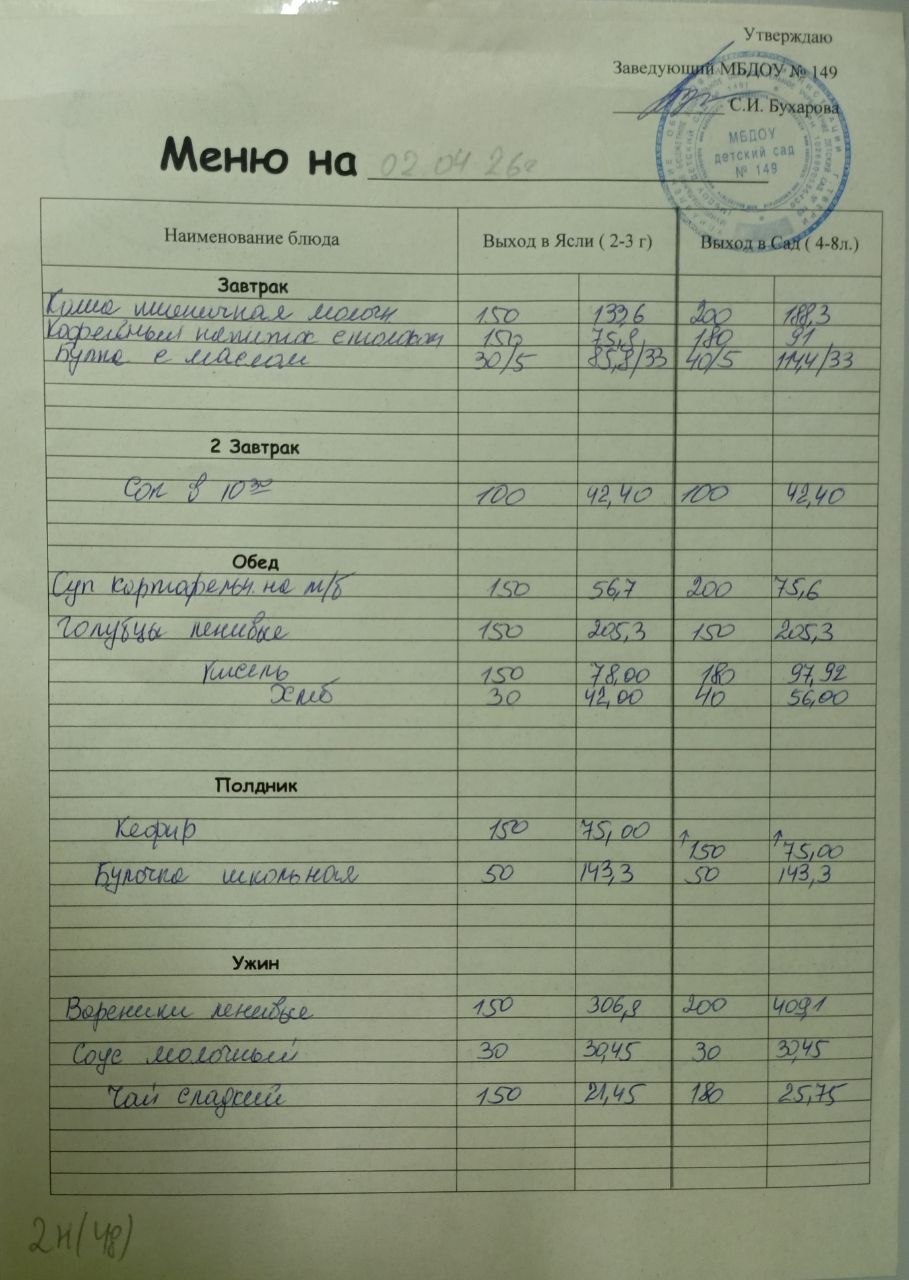 Утверждаю
Заведующий МБДОУ № 149
С.И. Бухарова
МБДОУ
детский сад
№ 149
Меню на 02 04 26г
Наименование блюда Выход в Ясли ( 2-3 г) Выход в Сад ( 4-8л.)
Завтрак
Каша пшеничная молочн 150 133,6 200 188,3
Кофейный напиток с молоком 150 75,8 180 91
Булка с маслом 30/5 85,8/33 40/5 114,4/33
2 Завтрак
Сок в 10 30 100 42,40 100 42,40
Обед
Суп картофельн. на м/б 150 56,7 200 75,6
Голубцы ленивые 150 205,3 150 205,3
Кисель 150 78,00 180 97,92
Хлеб 30 42,00 40 56,00
Полдник
Кефир 150 75,00 150 75,00
Булочка школьная 50 143,3 50 143,3
Ужин
Вареники ленивые 150 306,8 200 409,1
Соус молочный 30 30,45 30 30,45
Чай сладкий 150 21,45 180 25,75
2н(4д)